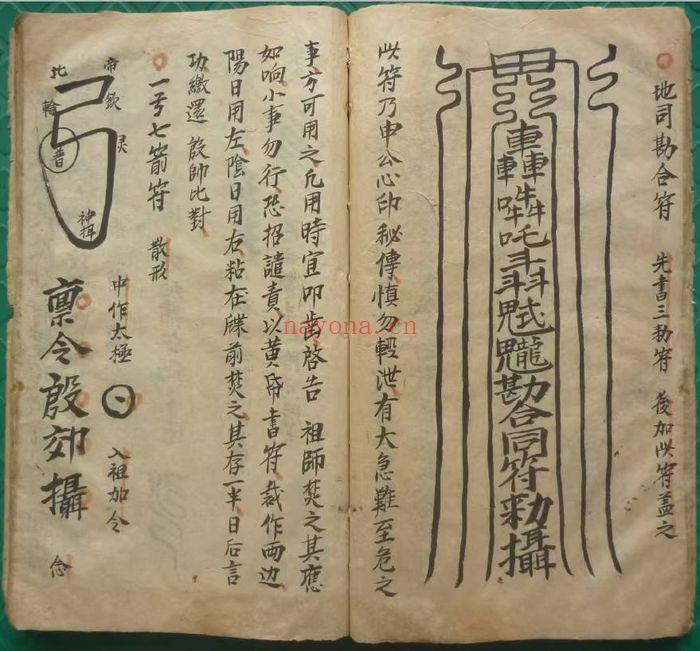 地司勘合符 先書三勅符 後加此符蓋之
勘合同符勅攝
此符乃申公心印秘傳慎勿輕泄有大急難至危之
事方可用之凡用時宜叩齒啓告 祖師焚之其應
如响小事勿行恐招譴責以黃帋書符裁作兩边
陽日用左陰日用右粘在牒前焚之其存一半日后言
功繳還 殷帥比對
一弓七箭符 散形
中作太極
入祖加令
帝欽
北
灵
普
神
稟令殷郊攝
念
nayona.cn